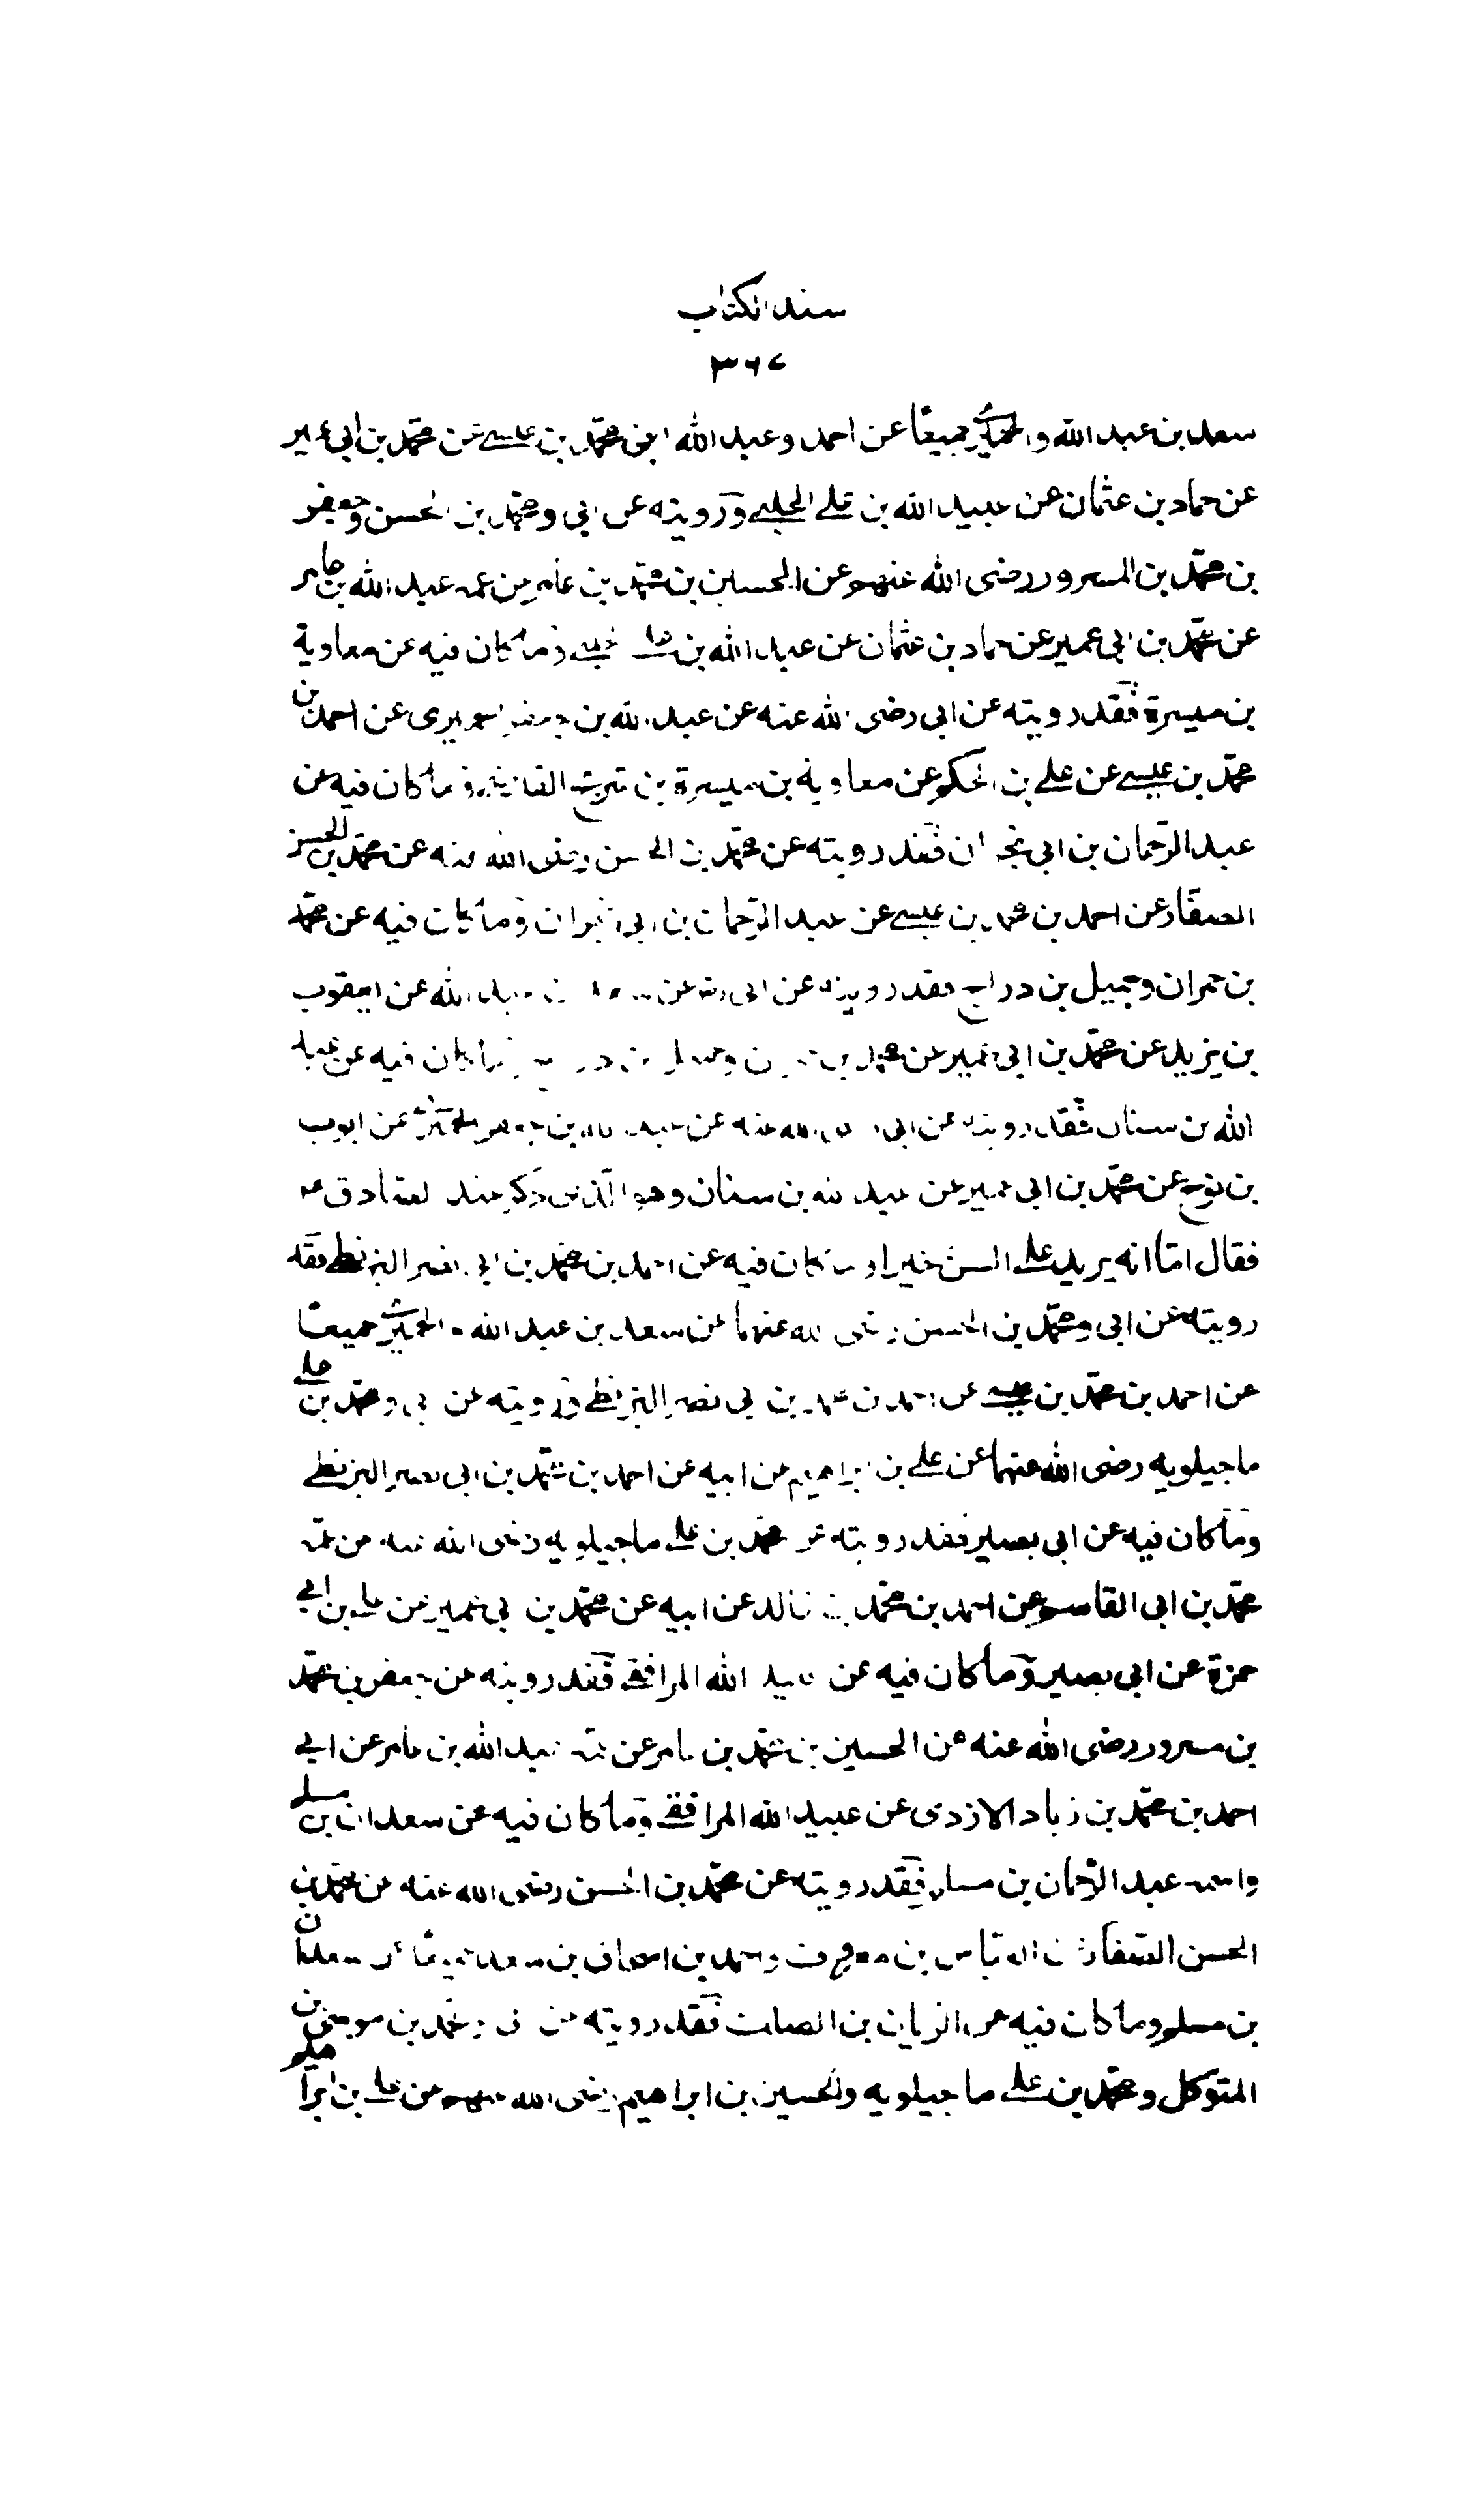 سند الكتاب
٣٦٧
سعد بن عبد الله والحميري جميعًا عن احمد وعبد الله ابنى محمّد بن عيسى عن محمّد بن ابى عمير
عن حماد بن عثمان عن عبيد الله بن على الحلبى ورويته عن ابى ومحمّد بن الحسن وجعفر
بن محمّد بن المسرور رضى الله عنهم عن الحسين بن محمّد بن عامر عن عمه عبد الله بن عامر
عن محمّد بن ابى عمير عن حماد بن عثمان عن عبيد الله بن على الحلبى وما كان فيه عن معاوية
بن ميسرة فقد رويته عن ابى رضى الله عنه عن عبد الله بن جعفر الحميرى عن احمد بن
محمّد بن عيسى عن على بن الحكم عن معاوية بن ميسرة بن شريح القاضى وما كان فيه عن
عبد الرّحمان بن ابى نجران فقد رويته عن محمّد بن الحسن رضى الله عنه عن محمّد بن الحسن
الصفّار عن احمد بن محمّد بن عيسى عن عبد الرّحمان بن ابى نجران وما كان فيه عن محمّد
بن حمران وجميل بن دراج فقد رويته عن ابى ره عن سعد بن عبد الله عن يعقوب
بن يزيد عن محمّد بن ابى عمير عن محمّد بن حمران وجميل بن دراج وما كان فيه عن عبد
الله بن سنان فقد رويته عن ابى رضى الله عنه عن عبد الله بن جعفر الحميري عن ايوب
بن نوح عن محمّد بن ابى عمير عن عبد الله بن سنان وهو الّذى ذكر عند الصادق ع
فقال امّا انه يزيد على السن خيرا وما كان فيه عن احمد بن محمّد بن ابى نصر البزنطى فقد
رويته عن ابى ومحمّد بن الحسن رضى الله عنهما عن سعد بن عبد الله والحميري جميعًا
عن احمد بن محمّد بن عيسى عن احمد بن محمد بن ابى نصر البزنطى ورويته عن ابى ومحمّد بن على
ماجيلويه رضى الله عنهما عن على بن ابراهيم عن ابيه عن احمد بن محمّد بن ابى نصر البزنطى
وما كان فيه عن ابى بصير فقد رويته عن محمّد بن على ماجيلويه رضى الله عنه عن عمّه
محمّد بن ابى القاسم عن احمد بن محمّد بن خالد عن ابيه عن محمّد بن ابى عمير عن على بن ابى
حمزة عن ابى بصير وما كان فيه عن عبيد الله المرافقى فقد رويته عن جعفر بن محمّد
بن مسرور رضى الله عنه عن الحسين بن محمّد بن عامر عن عمّه عبد الله بن عامر عن ابى
احمد بن محمّد بن زياد الازدى عن عبيد الله المرافقى وما كان فيه عن سعدان بن مسلم
واسمه عبد الرّحمان بن مسلم فقد رويته عن محمّد بن الحسن رضى الله عنه عن محمّد بن
الحسن الصّفار عن العبّاس بن معروف واحمد بن اسحاق بن سعد جميعًا عن سعدان
بن مسلم وما كان فيه عن الريان بن الصلت فقد رويته عن ابى ومحمّد بن موسى بن
المتوكل ومحمّد بن على ماجيلويه والحسين بن ابراهيم رضى الله عنهم عن على بن ابراهيم